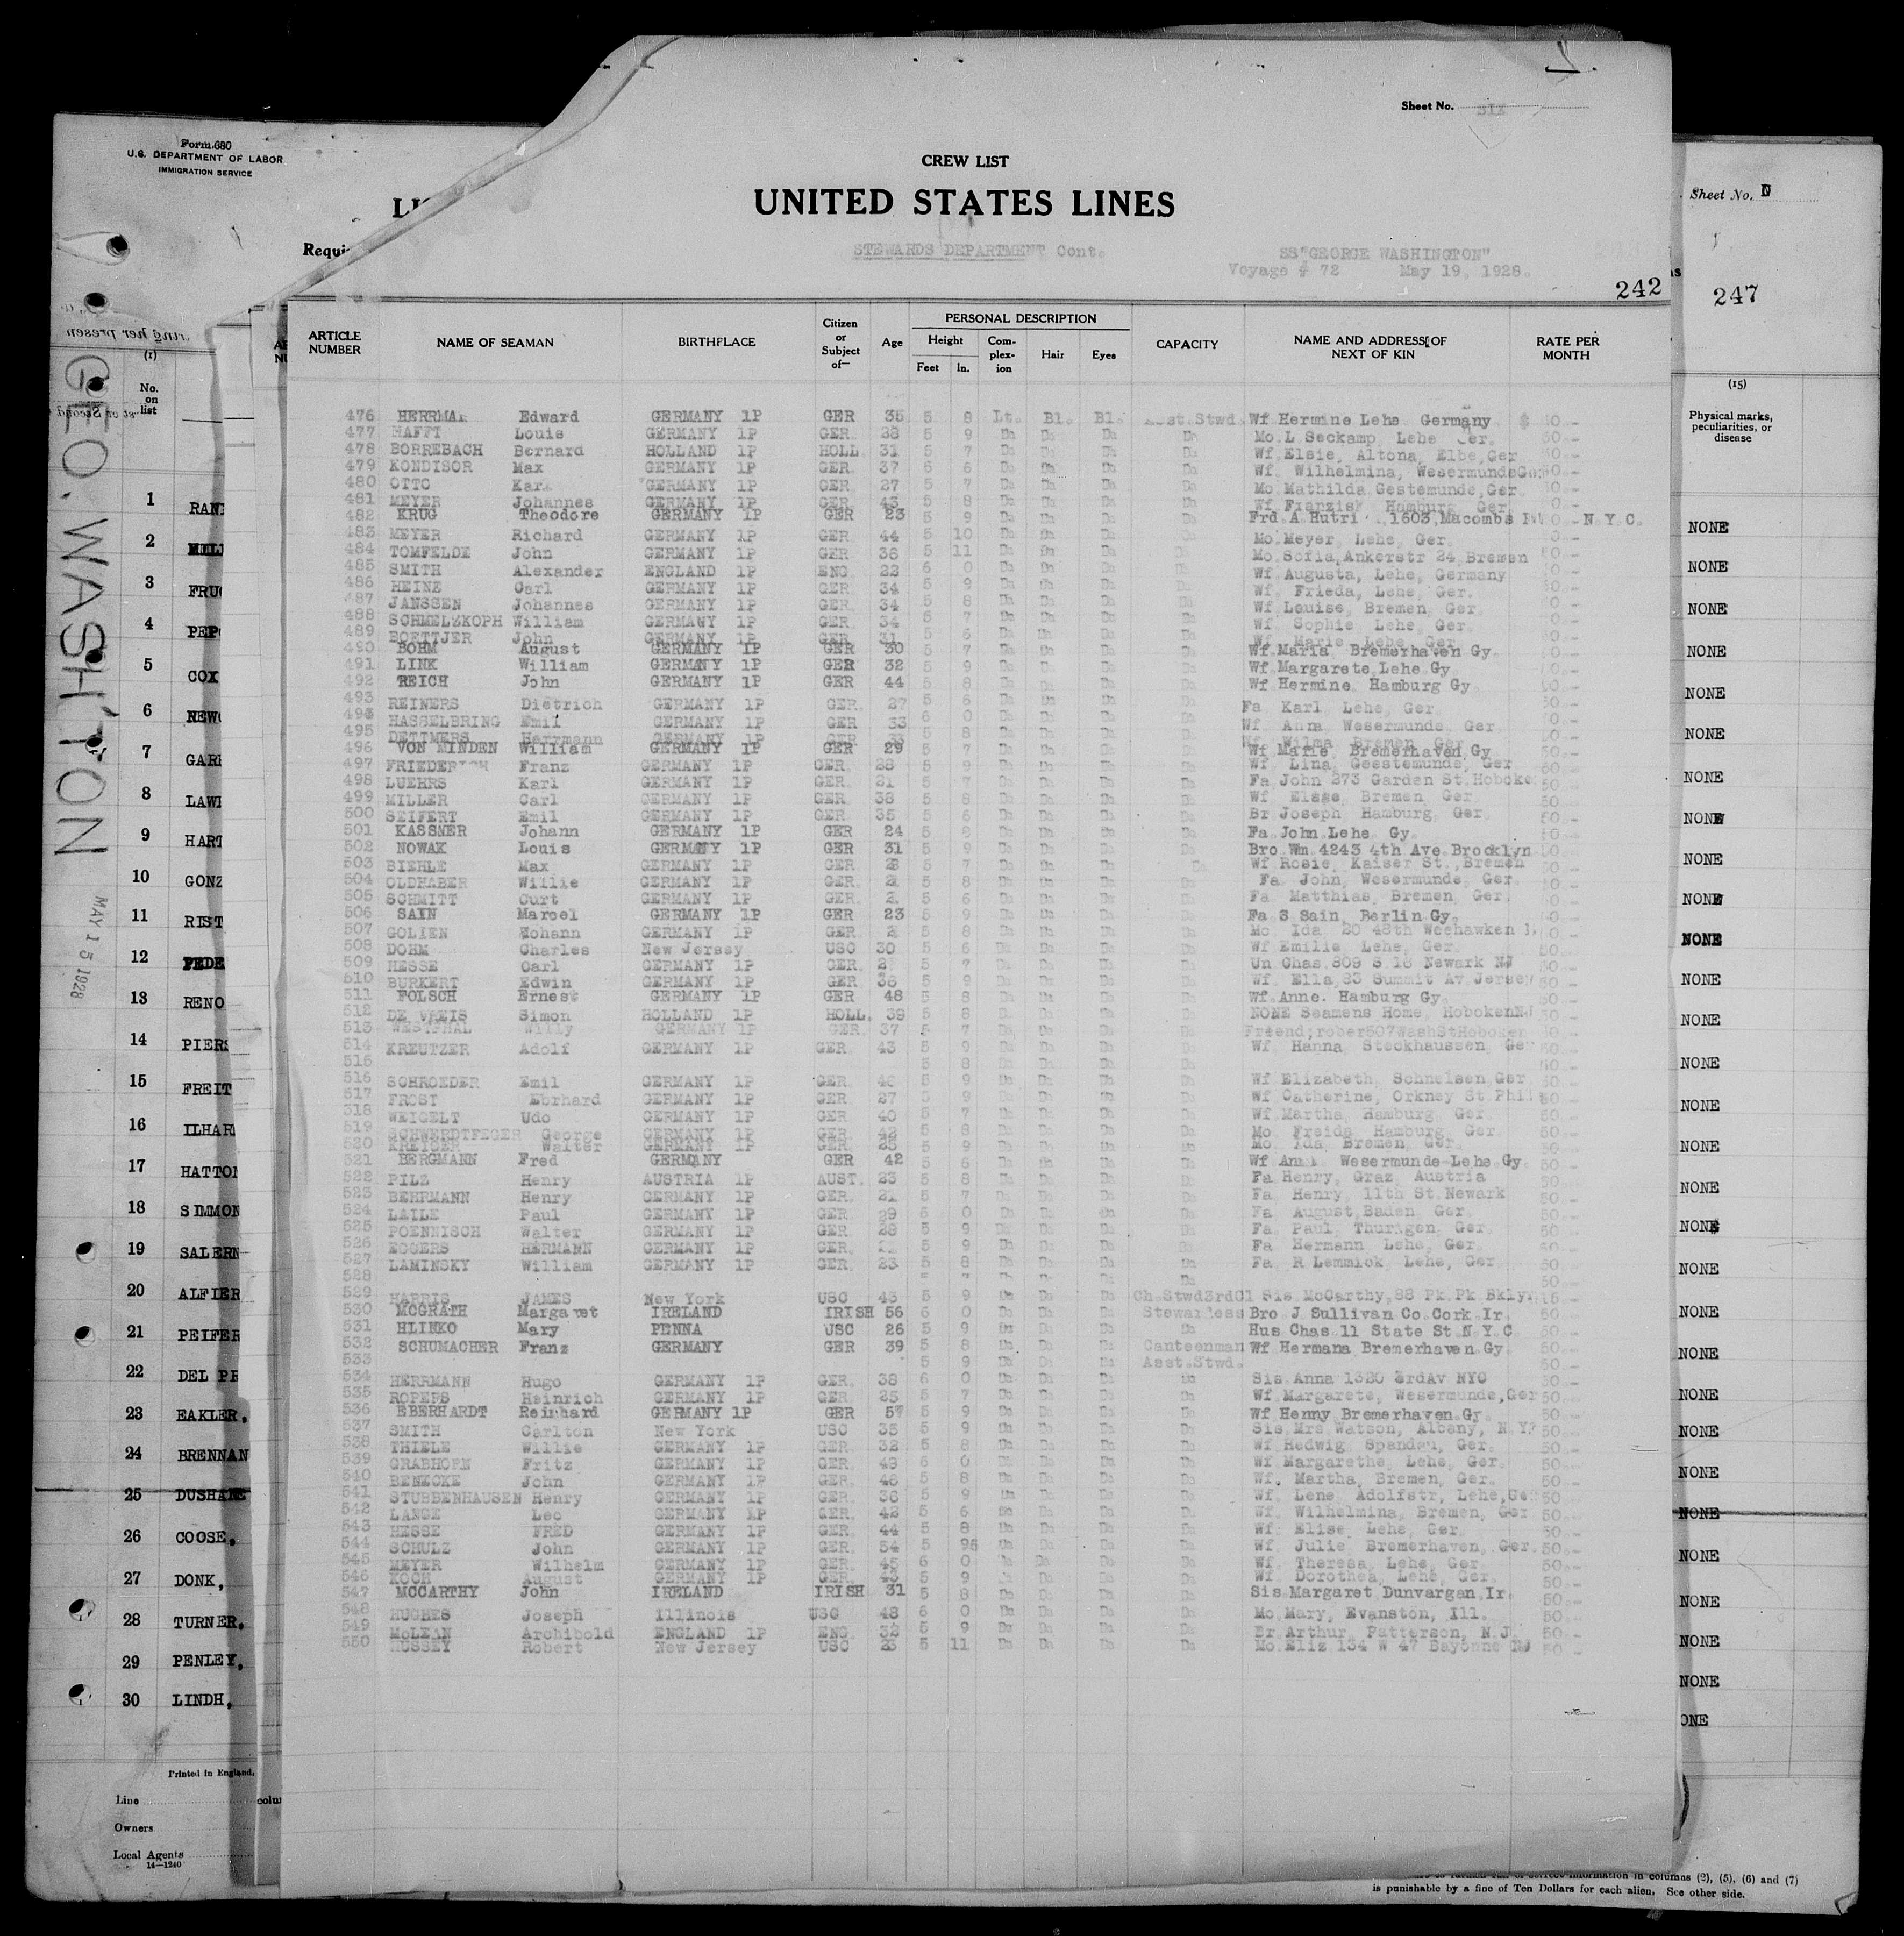 Form 680
U.S. DEPARTMENT OF LABOR
IMMIGRATION SERVICE
Sheet No. SIX
CREW LIST
UNITED STATES LINES
STEWARDS DEPARTMENT Cont.
SS"GEORGE WASHINGTON"
Voyage # 72 May 19, 1928.
242
Sheet No.
247
ARTICLE NUMBER NAME OF SEAMAN BIRTHPLACE Citizen or Subject of— Age PERSONAL DESCRIPTION Height Feet In. Complexion Hair Eyes CAPACITY NAME AND ADDRESS OF NEXT OF KIN RATE PER MONTH
476 Edward GERMANY 1P GER 35 5 8 Lt. Bl. Bl. Asst.Stwd. Wf Hermine Lehe Germany
477 HAFFT Louis GERMANY 1P GER. 5 9 Do Do Do Do Mo. L Seckamp, Lehe Ger.
478 BORREBACH Bernard HOLLAND 1P HOLL. 31 5 7 Do Do Do Do Wf. Elsie, Altona, Elbe,Ger
479 KONDISOR Max GERMANY 1P GER. 37 Do Do Do Do Wf. Wilhelmina, Wesermunde
480 OTTO GERMANY 1P GER 27 5 7 Do Do Do Do Mo. Mathilda Gestemunde,Ger.
481 MEYER Johannes GERMANY 1P GER. 43 5 8 Do Do Do Do Hamburg Ger.
482 KRUG Theodore GERMANY 1P GER 23 5 9 Do Do Do Do Frd. A. 1603,Macombs N.Y.C.
483 MEYER Richard GERMANY 1P GER 44 5 10 Do Do Do Do Mo.Meyer, Lehe, Ger.
484 TOMFELDE John GERMANY 1P GER 36 5 11 Do Do Do Mo.Sofia,Ankerstr 24,Bremen
485 SMITH Alexander ENGLAND 1P ENG 6 0 Do Do Do Wf Augusta, Lehe, Germany
486 HEINE Carl GERMANY 1P GER. 34 5 9 Do Do Do Wf. Frieda, Lehe, Ger.
487 JANSSEN Johannes GERMANY 1P GER. 34 5 8 Do Do Do Do Wf.Louise, Bremen, Ger.
488 SCHMELZKOPH William GERMANY 1P GER. 34 5 7 Do Do Do Do Wf. Sophie Lehe, Ger.
489 BOETTJER John GERMANY 1P GER. 31 5 6 Do Do Do Do Wf. Marie, Lehe, Ger.
490 BOHM August GERMANY 1P GER 30 5 7 Do Do Do Do Wf.Maria, Bremerhaven Gy.
491 LINK William GERMANY 1P GER 32 5 9 Do Do Do Do Wf.Margarete,Lehe Gy
492 REICH John GERMANY 1P GER 44 5 8 Do Do Do Do Wf Hermine, Hamburg Gy.
493 REINERS Dietrich GERMANY 1P GER. 27 5 6 Do Do Do Do Fa. Karl, Lehe, Ger
HASSELBRING Emil GERMANY 1P GER 33 6 0 Do Do Do Do Wf. Anna, Wesermunde, Ger.
495 DETTMERS Herrmann GERMANY 1P GER 33 5 8 Do Do Do Do Wf. Wilma, Bremen, Ger
496 VON MINDEN William GERMANY 1P GER 29 5 7 Do Do Do Do Wf Marie, Bremerhaven,Gy
497 FRIEDERICH Franz GERMANY 1P GER. 28 5 9 Do Do Do Do Wf. Lina, Geestemunde, Ger
498 LUEHRS Karl GERMANY 1P GER. 21 5 7 Do Do Do Do Fa John 273 Garden St.Hoboken
499 MILLER Carl GERMANY 1P GER. 38 5 8 Do Do Do Do Wf. Bremen, Ger
500 SEIFERT Emil GERMANY 1P GER. 35 5 6 Do Do Do Do Br Joseph, Hamburg, Ger.
501 KASSNER Johann GERMANY 1P GER 24 5 8 Do Do Do Do Fa.John,Lehe, Gy.
502 NOWAK Louis GERMANY 1P GER 31 5 9 Do Do Do Do Bro.Wm.4243 4th Ave.Brooklyn
503 BIEHLE Max GERMANY 1P GER 5 7 Do Do Do Do Wf Rosie, Kaiser St., Bremen
504 Willie GERMANY 1P GER. 5 8 Do Do Do Do Fa. John, Wesermunde, Ger.
505 SCHMITT Curt GERMANY 1P GER. 5 6 Do Do Do Do Fa. Matthias, Bremen, Ger.
506 SAIN Marcel GERMANY 1P GER 23 5 9 Do Do Do Do Fa.S.Sain, Berlin,Gy.
507 GOLIEN Johann GERMANY 1P GER. 5 8 Do Do Do Do Mo. Ida 20 48th Weehawken
508 DOHM Charles New Jersey USC 30 5 6 Do Do Do Do Wf Emilie, Lehe, Ger.
509 HESSE Carl GERMANY 1P GER. 5 7 Do Do Do Do Un.Chas.809 S 18 Newark NJ
510 BURKERT Edwin GERMANY 1P GER 36 5 9 Do Do Do Do Wf. Ella,83 Summit Av Jersey
511 FOLSCH Ernest GERMANY 1P GER 48 5 8 Do Do Do Do Wf.Anne. Hamburg Gy.
512 DE VREIS Simon HOLLAND 1P HOLL. 39 5 8 Do Do Do Do NONE Seamens Home, HobokenNJ
513 WESTPHAL Willy GERMANY 1P GER. 37 5 7 Do Do Do Do
514 KREUTZER Adolf GERMANY 1P GER. 43 5 9 Do Do Do Do Wf. Hanna Steckhaussen, Ger
515 5 8 Do Do Do
516 SCHROEDER Emil GERMANY 1P GER. 46 5 9 Do Do Do Do Wf Elizabeth, Schneisen,Ger
517 FROST Ebrhard GERMANY 1P GER. 27 5 9 Do Do Do Do Wf Catherine, Orkney St.Phil
518 WEIGELT Udo GERMANY 1P GER 40 5 7 Do Do Do Do Wf.Martha, Hamburg, Ger.
519 SCHWERDTFEGER George GERMANY 1P GER. 5 8 Do Do Do Do Mo. Freida, Hamburg, Ger.
520 KREIGER Walter GERMANY 1P GER. 25 5 9 Do Do Do Do Mo. Ida, Bremen, Ger.
521 BERGMANN Fred GERMANY GER 42 5 6 Do Do Do Do Wf Wesermunde-Lehe Gy.
522 PILZ Henry AUSTRIA 1P AUST. 23 5 8 Do Do Do Do Fa.Henry, Graz, Austria
523 BEHRMANN Henry GERMANY 1P GER. 21 5 7 Do Do Do Do Fa. Henry, 11th St.Newark
524 LAILE Paul GERMANY 1P GER. 29 6 0 Do Do Do Do Fa. August,Baden, Ger.
525 POENNISCH Walter GERMANY 1P GER. 28 5 9 Do Do Do Do Fa. Paul, Thurigen, Ger.
526 EGGERS HERMANN GERMANY 1P GER. 5 9 Do Do Do Do Fa. Hermann, Lehe, Ger.
527 LAMINSKY William GERMANY 1P GER. 23 5 8 Do Do Do Do Fa. R Lemmick, Lehe, Ger
528
529 HARRIS JAMES New York USC 43 5 9 Do Do Do Ch.Stwd3rdCl Sis McCarthy,88 Pk.Pk Bklyn
530 MCGRATH Margaret IRELAND IRISH 56 6 0 Do Do Do Stewardess Bro.J.Sullivan Co.Cork Ir.
531 HLINKO Mary PENNA USC 26 5 9 Do Do Do Do Hus.Chas.11 State St.N.Y.C
532 SCHUMACHER Franz GERMANY GER 39 5 8 Do Do Do Canteenman Wf Hermana Bremerhaven Gy.
533 5 9 Do Do Do Asst.Stwd.
534 HERRMANN Hugo GERMANY 1P GER. 38 6 0 Do Do Do Do Sis.Anna 1320 3rdAv NYC
535 ROPERS Heinrich GERMANY 1P GER. 25 5 7 Do Do Do Do Wf.Margarete, Wesermunde,Ger 50.-
536 EBERHARDT Reinhard GERMANY 1P GER 57 5 9 Do Do Do Do Wf Henny Bremerhaven.Gy. 50.-
537 SMITH Carlton New York USC 35 5 9 Do Do Do Do Sis.Mrs.Watson, Albany, N.Y. 50.-
538 THIELE Willie GERMANY 1P GER. 32 5 8 Do Do Do Do Wf Hedwig, Spandau, Ger. 50.-
539 GRABHORN Fritz GERMANY 1P GER. 6 0 Do Do Do Do Wf.Margarethe, Lehe, Ger. 50.-
540 BENECKE John GERMANY 1P GER. 46 5 8 Do Do Do Do Wf. Martha, Bremen, Ger. 50.-
541 STUBBENHAUSEN Henry GERMANY 1P GER. 36 5 9 Do Do Do Do Wf. Lene, Adolfstr, Lehe,Ger 50.-
542 LANGE Leo GERMANY 1P GER. 42 5 6 Do Do Do Do Wf. Wilhelmina, Bremen, Ger 50.-
543 HESSE FRED GERMANY 1P GER. 44 5 8 Do Do Do Do Wf. Elise, Lehe, Ger. 50.-
544 SCHULZ John GERMANY 1P GER. 54 5 Do Do Do Do Wf. Julie, Bremerhaven, Ger. 50.-
545 MEYER Wilhelm GERMANY 1P GER. 45 6 0 Do Do Do Wf. Theresa, Lehe, Ger. 50.-
546 KOCH August GERMANY 1P GER. 5 9 Do Do Do Wf. Dorothea, Lehe, Ger. 50.-
547 MCCARTHY John IRELAND IRISH 31 5 8 Do Do Do Do Sis.Margaret Dunvargan Ir. 50.-
548 HUGHES Joseph Illinois USC 48 6 0 Do Do Do Do Mo.Mary, Evanston, Ill. 50.-
549 McLEAN Archibold ENGLAND 1P ENG. 32 5 9 Do Do Do Do Br.Arthur, Patterson, N.J. 50.-
550 HUSSEY Robert New Jersey USC 5 11 Do Do Do Do Mo.Eliz 134 W 47 Bayonne NJ 50.-
GEO. WASH'TON
MAY 15 1928
(1)
No. on list
1
2
3
4
5 COX
6
7
8
9
10
11
12
13 RENO
14
15
16
17
18
19
20
21
22
23 EAKLER,
24 BRENNAN
25
26 COOSE,
27 DONK,
28 TURNER,
29 PENLEY,
30 LINDH,
Printed in England.
Line
Owners
Local Agents
14—1240
(15)
Physical marks, peculiarities, or disease
NONE
NONE
NONE
NONE
NONE
NONE
NONE
NONE
NONE
NONE
NONE
NONE
NONE
NONE
NONE
NONE
NONE
NONE
NONE
NONE
NONE
NONE
NONE
NONE
NONE
NONE
NONE
NONE
NONE
information in columns (2), (5), (6) and (7)
is punishable by a fine of Ten Dollars for each alien. See other side.